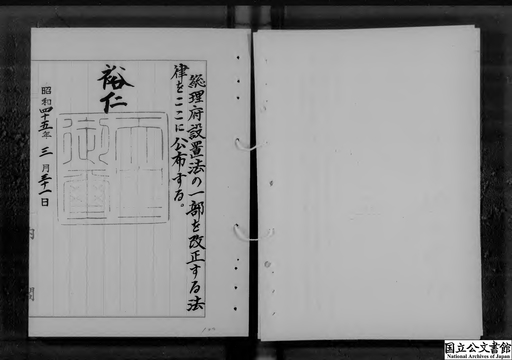 総理府設置法の一部を改正する法
律をここに公布する。
裕仁
天皇御璽
昭和四十五年三月三十一日
国立公文書館
National Archives of Japan